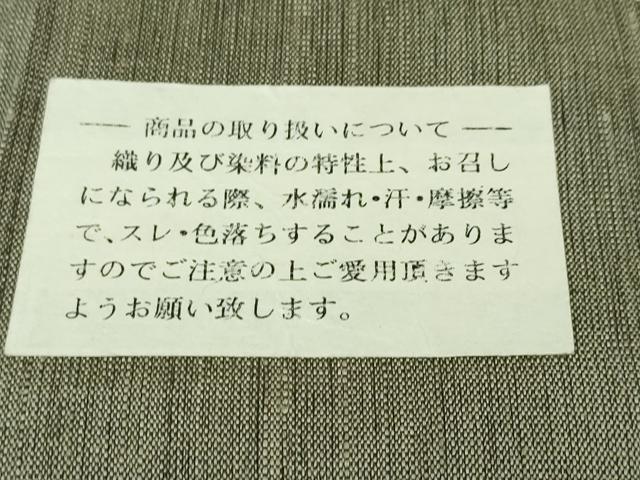 ── 商品の取り扱いについて ──
織り及び染料の特性上、お召し
になられる際、水濡れ・汗・摩擦等
で、スレ・色落ちすることがありま
すのでご注意の上ご愛用頂きます
ようお願い致します。